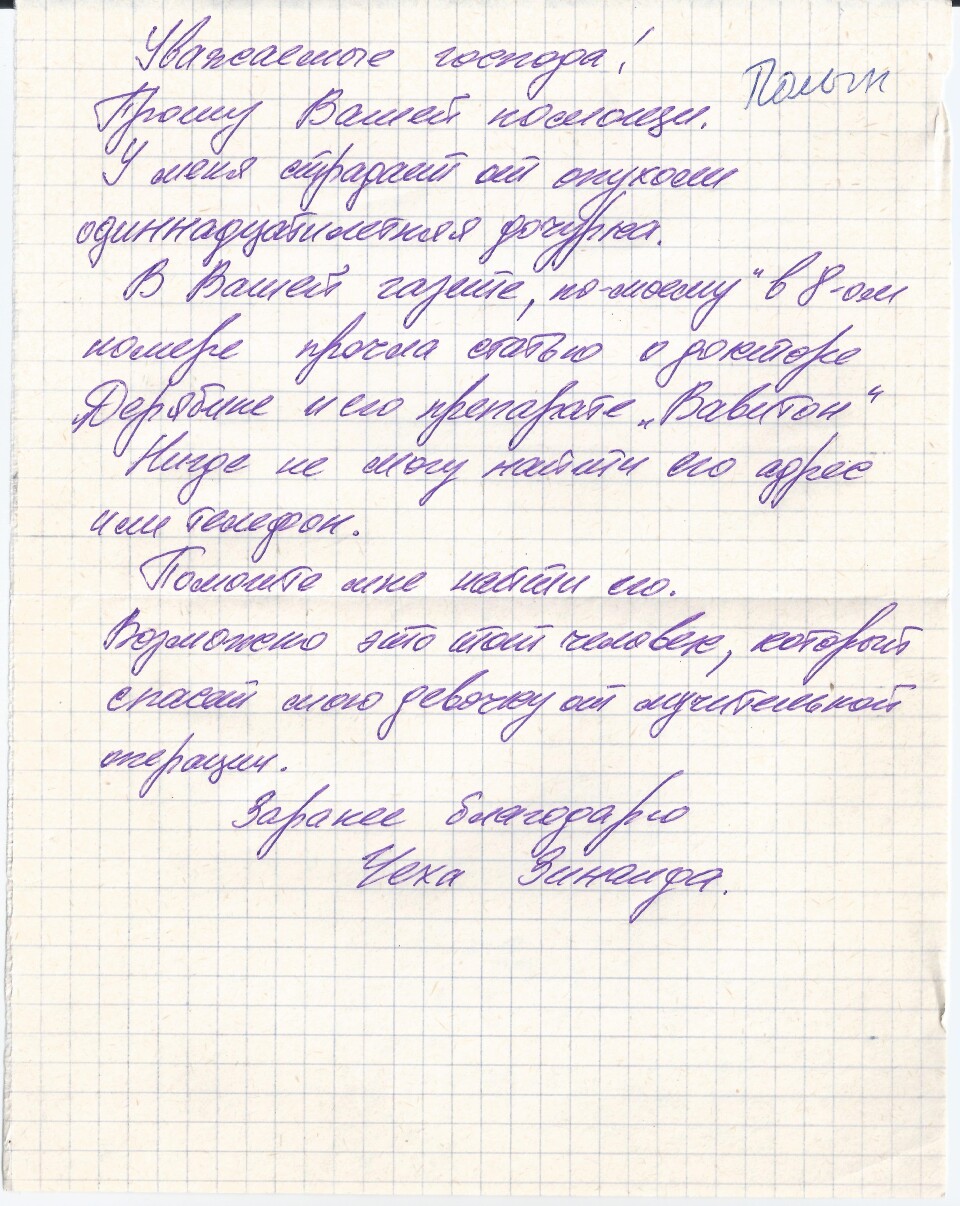 Уважаемые господа!
Полын
Прошу Вашей помощи.
У меня страдает от опухоли
одиннадцатилетняя дочурка.
В Вашей газете, по-моему" в 8-ом
номере прочла статью о докторе
Дерябине и его препарате „Вавитон"
Нигде не могу найти его адрес
или телефон.
Помогите мне найти его.
Возможно это тот человек, который
спасет мою девочку от мучительной
операции.
Заранее благодарю
Чеха Зинаида.